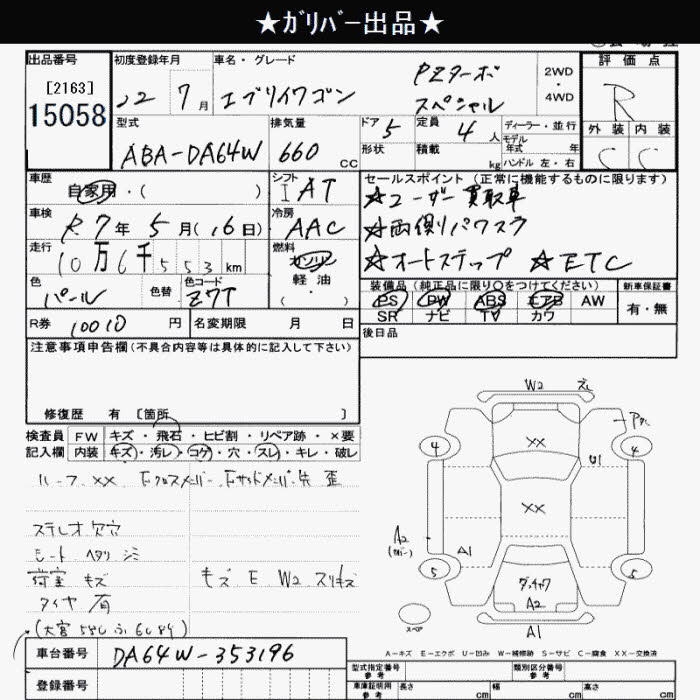 ★ｶﾞﾘﾊﾞｰ出品★
出品番号
[2163]
15058
初度登録年月
22 7月
車名・グレード
エブリイワゴン
PZターボ
スペシャル
2WD
・
4WD
評価点
R
外装 内装
C C
型式
ABA-DA64W
排気量
660 CC
ドア 5
形状
定員 4人
積載 kg
ディーラー・並行
モデル年式 年
ハンドル 左・右
車歴
自家用・( )
シフト
IAT
セールスポイント (正常に機能するものに限ります)
☆ユーザー買取車
☆両側パワスラ
☆オートステップ ☆ETC
車検
R7年5月(16日)
冷房
AAC
走行
10万6千553km
燃料
ガソリン
軽油
・
( )
色
パール
色替
色コード
Z7T
装備品 (純正品に限り○をつけてください)
PS PW ABS エアB AW
SR ナビ TV カワ
新車保証書
有・無
R券 10010円
名変期限 月 日
後日品
注意事項申告欄(不具合内容等は具体的に記入して下さい)
修復歴 有 [箇所 ]
検査員
記入欄
FW キズ・飛石・ヒビ割・リペア跡・×要
内装 キズ・汚レ・コゲ・穴・スレ・キレ・破レ
ルーフ XX Fクロスメンバー Fサイドメンバー先 歪
ステレオ欠穴
シート ヘタリ シミ
荷室 キズ
タイヤ 有
キズ E W2 スリキズ
W2
XX
U1
4
4
XX
A2
A1
5
5
ダッチャク
A2
スペア
A1
A-キズ E-エクボ U-凹み W-補修跡 S-サビ C-腐食 XX-交換済
車台番号
DA64W-353196
登録番号
型式指定番号
参考
類別区分番号
参考
車庫証明用
参考
長さ cm
幅 cm
高さ cm